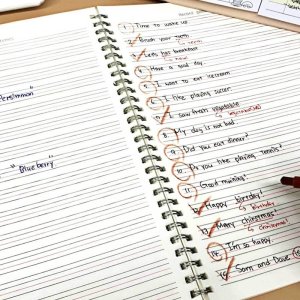 Persimmon"
"Blueberry"
1. Time to wake up.
2. Brush your teeth.
3. Let's hav breakfast
4. Have a good day.
5. I want to eat icecream
6. I like playing soccer.
7. I saw fresh vegitable
vegetables
8. My day is not bad
9. Did you eat dinner?
10. Do you like playing tennis?
11. Good morning!
12. Happy birtday!
birthday
13. Merry chirstmas!
christmas!
14. I'm so happy.
15. Sam and Dave